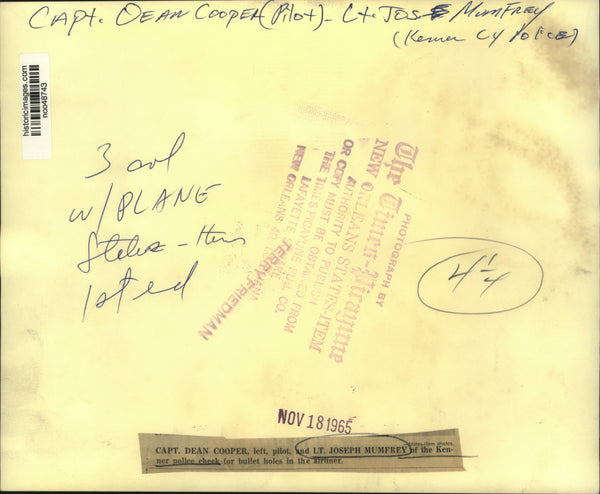 CAPT. DEAN COOPER (Pilot) - Lt. JOS E MUMFREY
(Kenner Cy Police)
historicimages.com
noo48743
3 col
W/PLANE
1st ed
PHOTOGRAPH BY
The Times-Picayune
NEW ORLEANS STATES-ITEM
AUTHORITY TO PUBLISH
OR COPY MUST BE OBTAINED FROM
THE TIMES-PICAYUNE PUB. CO.
LAFAYETTE
NEW ORLEANS
TERRY FRIEDMAN
4 1/4
NOV 18 1965
—States-Item photos.
CAPT. DEAN COOPER, left, pilot, and LT. JOSEPH MUMFREY of the Ken-
ner police check for bullet holes in the airliner.